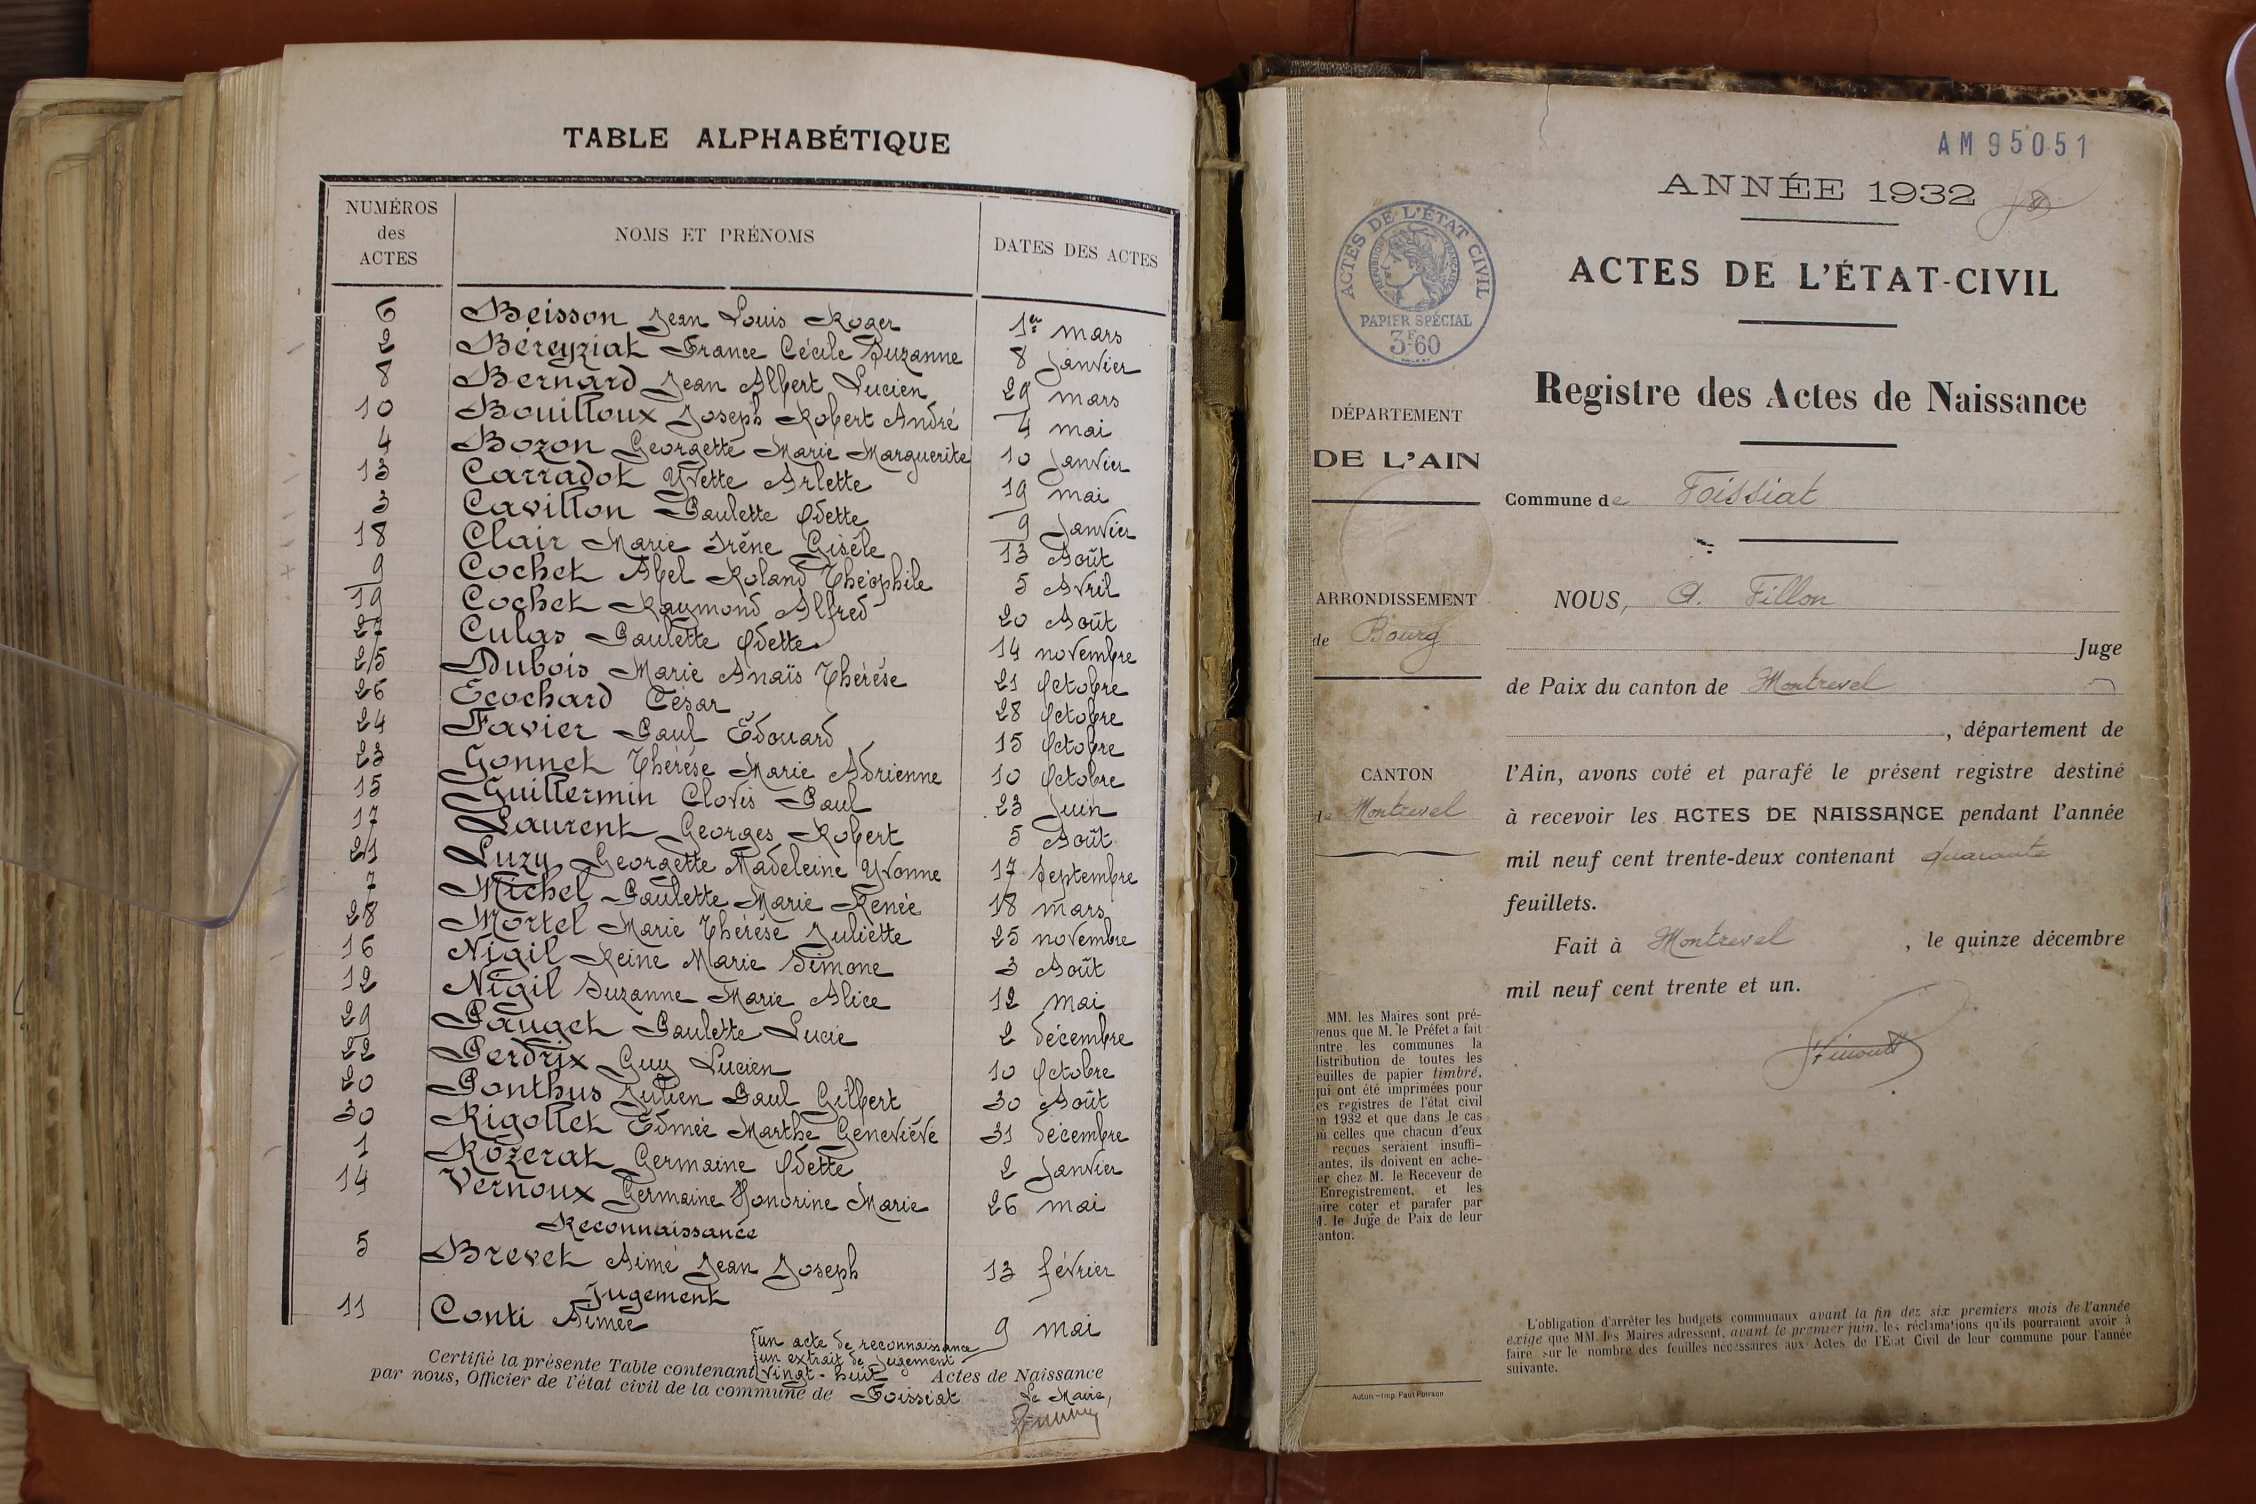 TABLE ALPHABÉTIQUE
NUMÉROS des ACTES NOMS ET PRÉNOMS DATES DES ACTES
6 Beisson Jean Louis Roger 1er mars
2 Béreyziat France Cécile Suzanne 8 Janvier
8 Bernard Jean Albert Lucien 29 mars
10 Bouilloux Joseph Robert André 4 mai
4 Bozon Georgette Marie Marguerite 10 Janvier
13 Carradot Yvette Arlette 19 mai
3 Cavillon Paulette Odette 9 Janvier
18 Clair Marie Irène Gisèle 13 Août
9 Cochet Abel Roland Théophile 5 Avril
19 Cochet Raymond Alfred 20 Août
27 Culas Paulette Odette 14 novembre
25 Dubois Marie Anaïs Thérèse 21 Octobre
26 Ecochard César 28 Octobre
24 Favier Paul Edouard 15 Octobre
23 Gonnet Thérèse Marie Adrienne 10 Octobre
15 Guillermin Clovis Paul 23 Juin
17 Laurent Georges Robert 5 Août
21 Luzy Georgette Madeleine Yvonne 17 Septembre
7 Michel Paulette Marie Renée 18 mars
28 Mortel Marie Thérèse Juliette 25 novembre
16 Nigil Reine Marie Simone 3 Août
12 Nigil Suzanne Marie Alice 12 mai
29 Pauget Paulette Lucie 2 décembre
22 Perdrix Guy Lucien 10 Octobre
20 Ponthus Julien Paul Gilbert 30 Août
30 Rigollet Edmée Marthe Geneviève 31 décembre
1 Rozerat Germaine Odette 2 Janvier
14 Vernoux Germaine Honorine Marie 26 mai
Reconnaissance
5 Brevet Aimé Jean Joseph 13 février
Jugement
11 Conti Aimée 9 mai
un acte de reconnaissance
un extrait de Jugement
Certifié la présente Table contenant vingt-huit Actes de Naissance
par nous, Officier de l'état civil de la commune de Foissiat
Le Maire,
AM95051
ANNÉE 1932
ACTES DE L'ÉTAT CIVIL
RÉPUBLIQUE FRANÇAISE
PAPIER SPÉCIAL
3F60
ACTES DE L'ÉTAT-CIVIL
Registre des Actes de Naissance
DÉPARTEMENT
DE L'AIN
ARRONDISSEMENT
de Bourg
CANTON
de Montrevel
MM. les Maires sont pré-
venus que M. le Préfet a fait
entre les communes la
distribution de toutes les
feuilles de papier timbré,
qui ont été imprimées pour
les registres de l'état civil
en 1932 et que dans le cas
où celles que chacun d'eux
reçues seraient insuffi-
santes, ils doivent en ache-
ter chez M. le Receveur de
Enregistrement, et les
faire coter et parafer par
M. le Juge de Paix de leur
canton.
Autun — Imp. Paul Poirson
Commune de Foissiat
NOUS, A. Fillon
Juge
de Paix du canton de Montrevel
, département de
l'Ain, avons coté et parafé le présent registre destiné
à recevoir les ACTES DE NAISSANCE pendant l'année
mil neuf cent trente-deux contenant quarante
feuillets.
Fait à Montrevel, le quinze décembre
mil neuf cent trente et un.
L'obligation d'arrêter les budgets communaux avant la fin des six premiers mois de l'année
exige que MM. les Maires adressent, avant le premier juin, les réclamations qu'ils pourraient avoir à
faire sur le nombre des feuilles nécessaires aux Actes de l'Etat Civil de leur commune pour l'année
suivante.